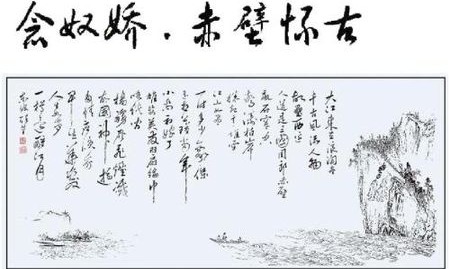 念奴娇·赤壁怀古
大江东去浪淘尽
千古风流人物
故垒西边
人道是三国周郎赤壁
乱石穿空
惊涛拍岸
卷起千堆雪
江山如画
一时多少豪杰
遥想公瑾当年
小乔初嫁了
雄姿英发羽扇纶巾
樯橹灰飞烟灭
故国神游
多情应笑我
早生华发
人生如梦
一樽还酹江月